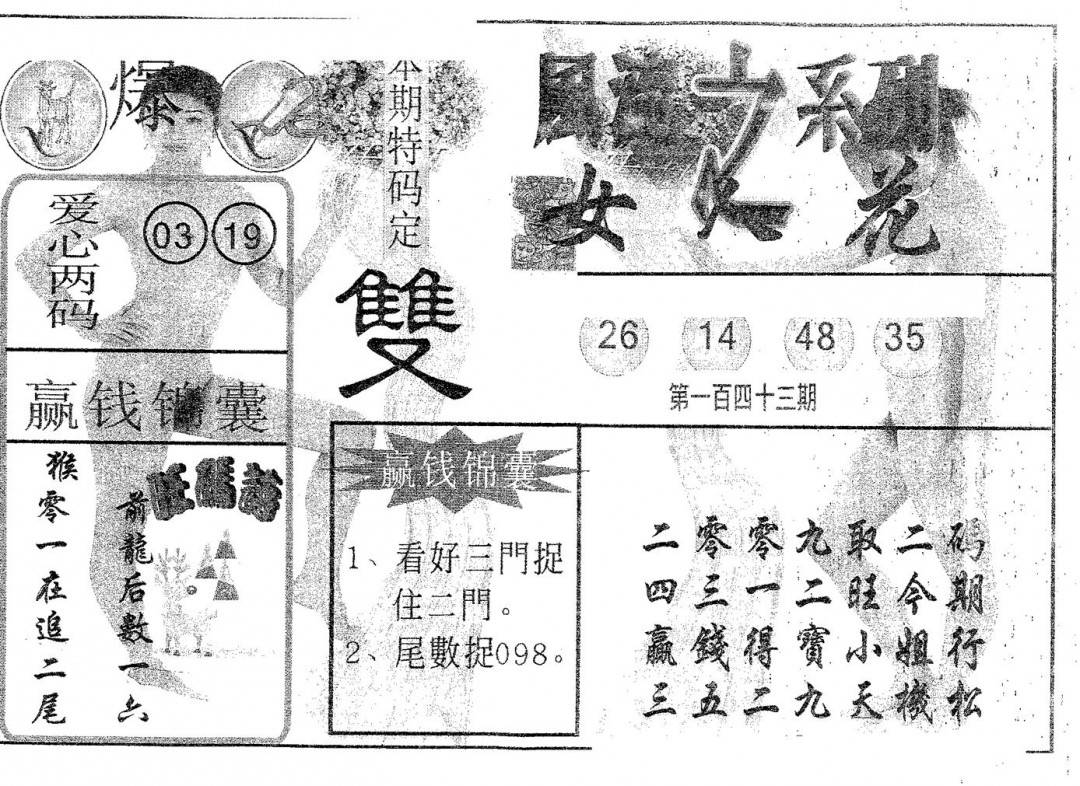 爆
本期特码定
雙
之系列
女 花
爱心两码
03 19
赢钱锦囊
26 14 48 35
第一百四十三期
旺碼詩
前龍后数一六
猴零一在追二尾
赢钱锦囊
1、看好三門捉
住二門。
2、尾數捉098。
码期行松
二今姐機
取旺小天
九二寶九
零一得二
零三錢五
二四贏三